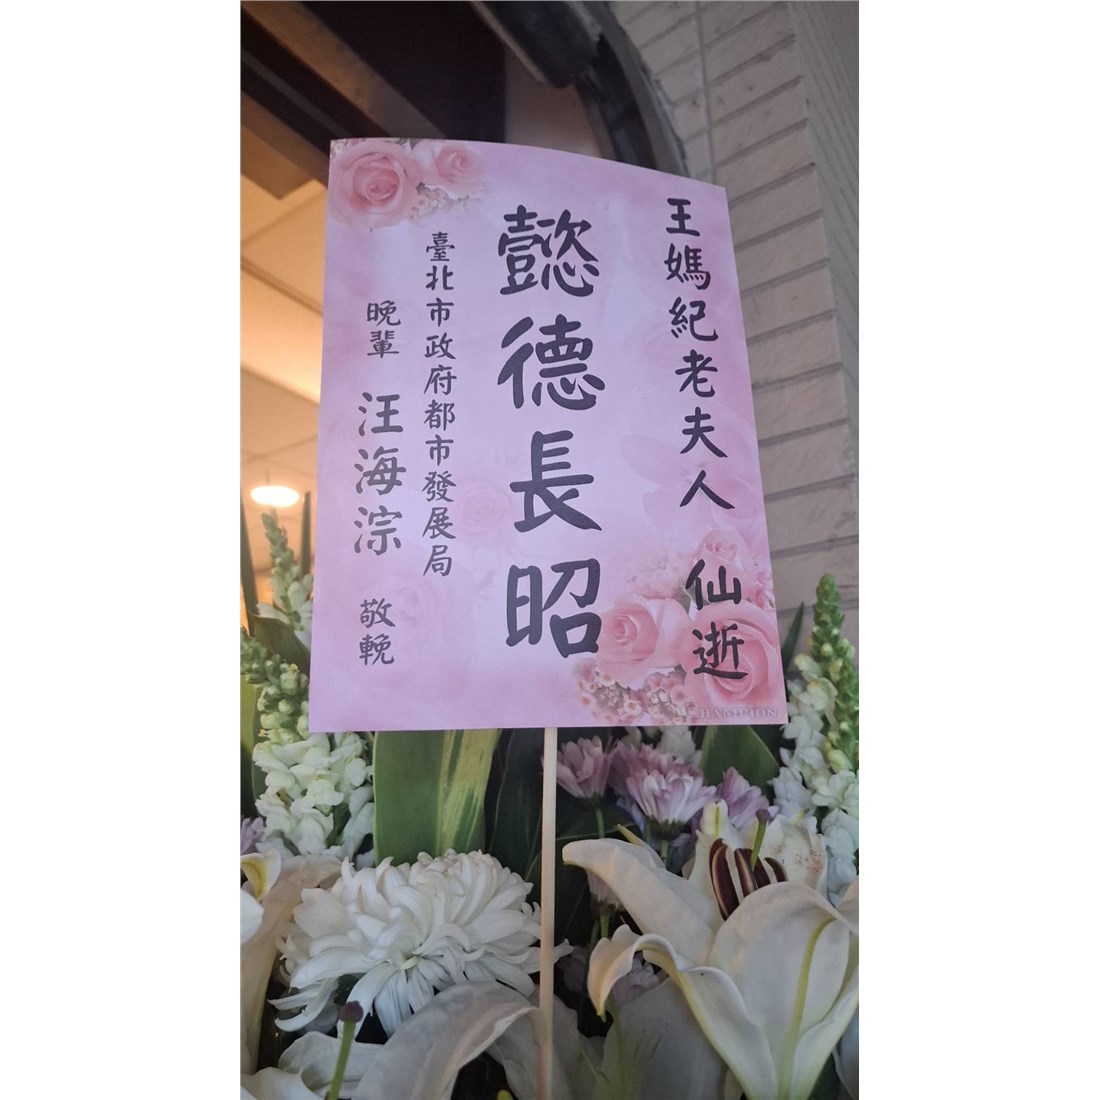 王媽紀老夫人 仙逝
懿德長昭
臺北市政府都市發展局
晚輩 汪海淙 敬輓
CHAMPION